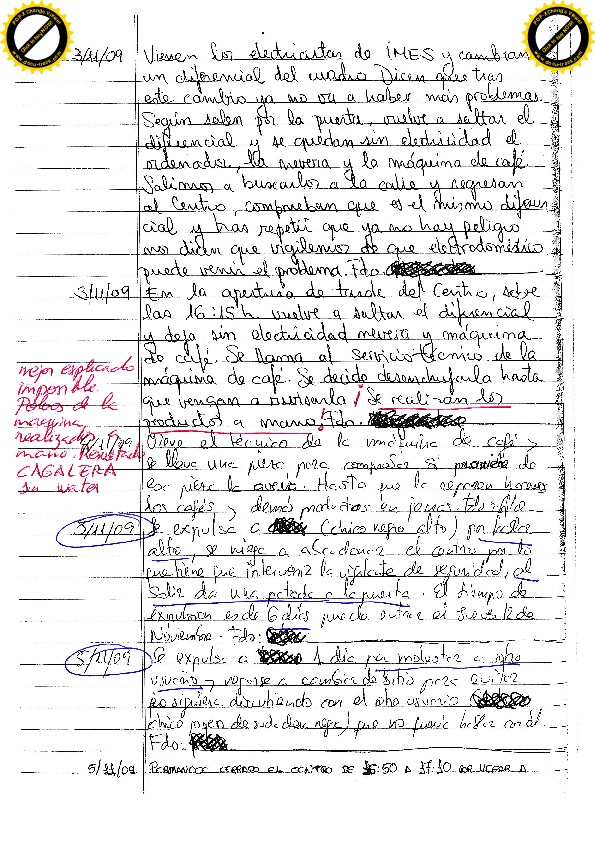 3/11/09 Vienen los electricistas de IMES y cambian
un diferencial del cuadro Dicen que tras
este cambio ya no va a haber más problemas.
Según salen por la puerta, vuelve a saltar el
diferencial y se quedan sin electricidad el
ordenador, la nevera y la máquina de café.
Salimos a buscarlos a la calle y regresan
al Centro, comprueban que es el mismo diferen
cial y tras repetir que ya no hay peligro
nos dicen que vigilemos de que electrodoméstico
puede venir el problema. Fdo.
3/11/09 En la apertura de tarde del Centro, sobre
las 16:15h vuelve a saltar el diferencial
y deja sin electricidad nevera y máquina
de café. Se llama al servicio técnico de la
máquina de café. Se decide desenchufarla hasta
que vengan a revisarla! Se realizan los
productos a mano! Fdo.
mejor explicado
imposible.
de la
maquina
realizados a
mano. Resultado
CAGALERA
sin water
/11/09 Viene el técnico de la máquina de café y
se lleva una pieza para comprobar si de
esa pieza la avería. Hasta que la reparen
los cafés y demás productos en
5/11/09 Se expulsa a (chico negro alto) por
alto, se niega a abandonar el centro por lo
que tiene que intervenir la vigilante de seguridad, al
salir da una patada a la puerta. El tiempo de
expulsión es de 6 días puede entrar el 12 de
Noviembre. Fdo:
5/11/09 Se expulsa a 1 día por molestar a otro
usuario y negarse a cambiar de sitio para evitar
seguir discutiendo con el otro usuario
chico joven de negra) que no quería hablar con él
Fdo:
5/11/09 PERMANECE CERRADO EL CENTRO DE 16:50 A 17:10 POR A